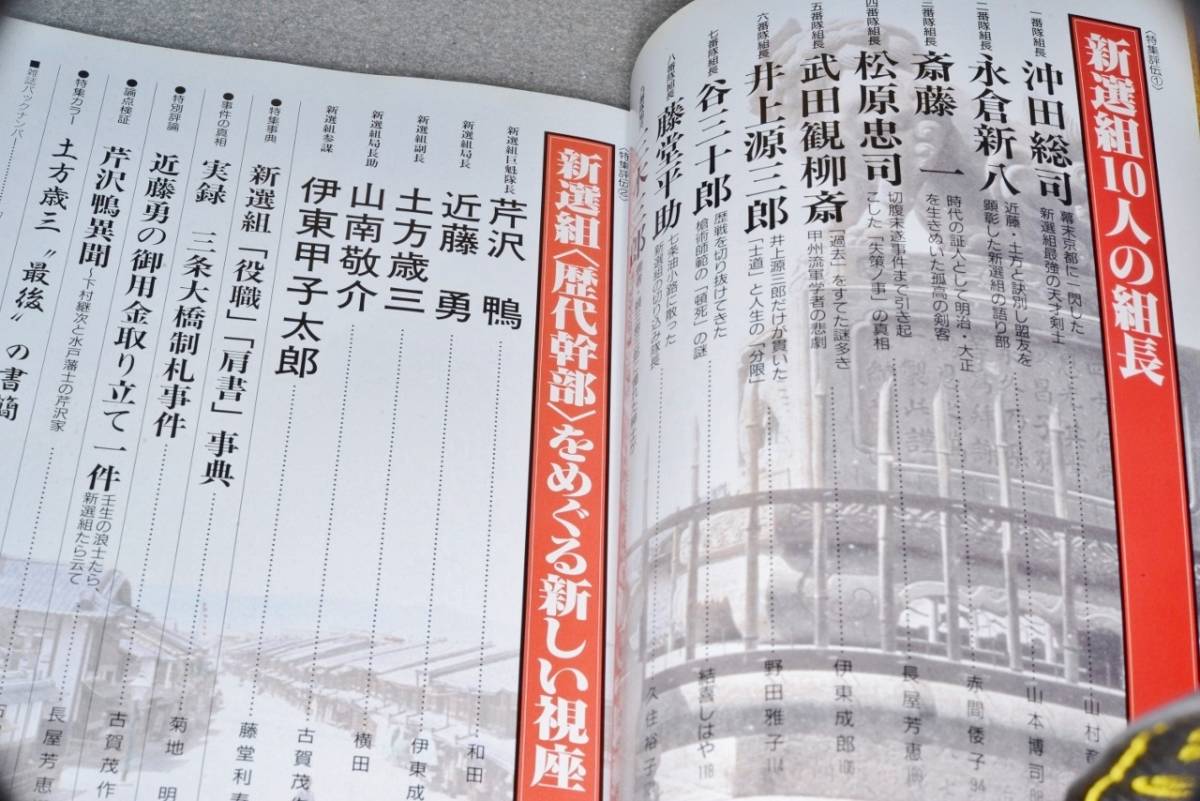 〈特集評伝①〉
新選組10人の組長
一番隊組長
沖田総司
幕末京都に一閃した
新選組最強の天才剣士
山村竜
二番隊組長
永倉新八
近藤・土方と訣別し盟友を
顕彰した新選組の語り部
山本博司
三番隊組長
斎藤一
時代の証人として明治・大正
を生きぬいた孤高の剣客
赤間倭子 94
四番隊組長
松原忠司
切腹未遂事件まで引き起
こした「失策ノ事」の真相
長屋芳恵
五番隊組長
武田観柳斎
「過去」をすてた謎多き
甲州流軍学者の悲劇
伊東成郎
六番隊組長
井上源三郎
井上源三郎だけが貫いた
「士道」と人生の「分限」
野田雅子 114
七番隊組長
谷三十郎
歴戦を切り抜けてきた
槍術師範の「頓死」の謎
結喜しはや 118
八番隊組長
藤堂平助
七条油小路に散った
新選組の切り込み隊長
久住裕子
〈特集評伝②〉
新選組〈歴代幹部〉をめぐる新しい視座
新選組巨魁隊長
芹沢 鴨
和田
新選組局長
近藤 勇
伊東成
新選組副長
土方歳三
横田
新選組局長助
山南敬介
古賀茂作
新選組参謀
伊東甲子太郎
藤堂利寿
●特集事典
新選組「役職」「肩書」事典
●事件の真相
実録 三条大橋制札事件
菊地 明
●特別評論
近藤勇の御用金取り立て一件
壬生の浪士たら、
新選組たら云て
古賀茂作
●論点検証
芹沢鴨異聞
~下村継次と水戸藩士の芹沢家
長屋芳恵
●特集カラー
土方歳三〝最後〟の書簡
■雑誌バックナンバー